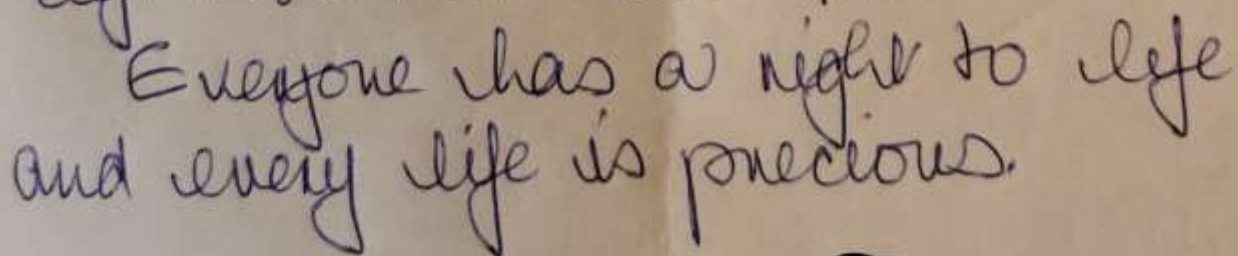 Everyone has a right to life
and every life is precious.